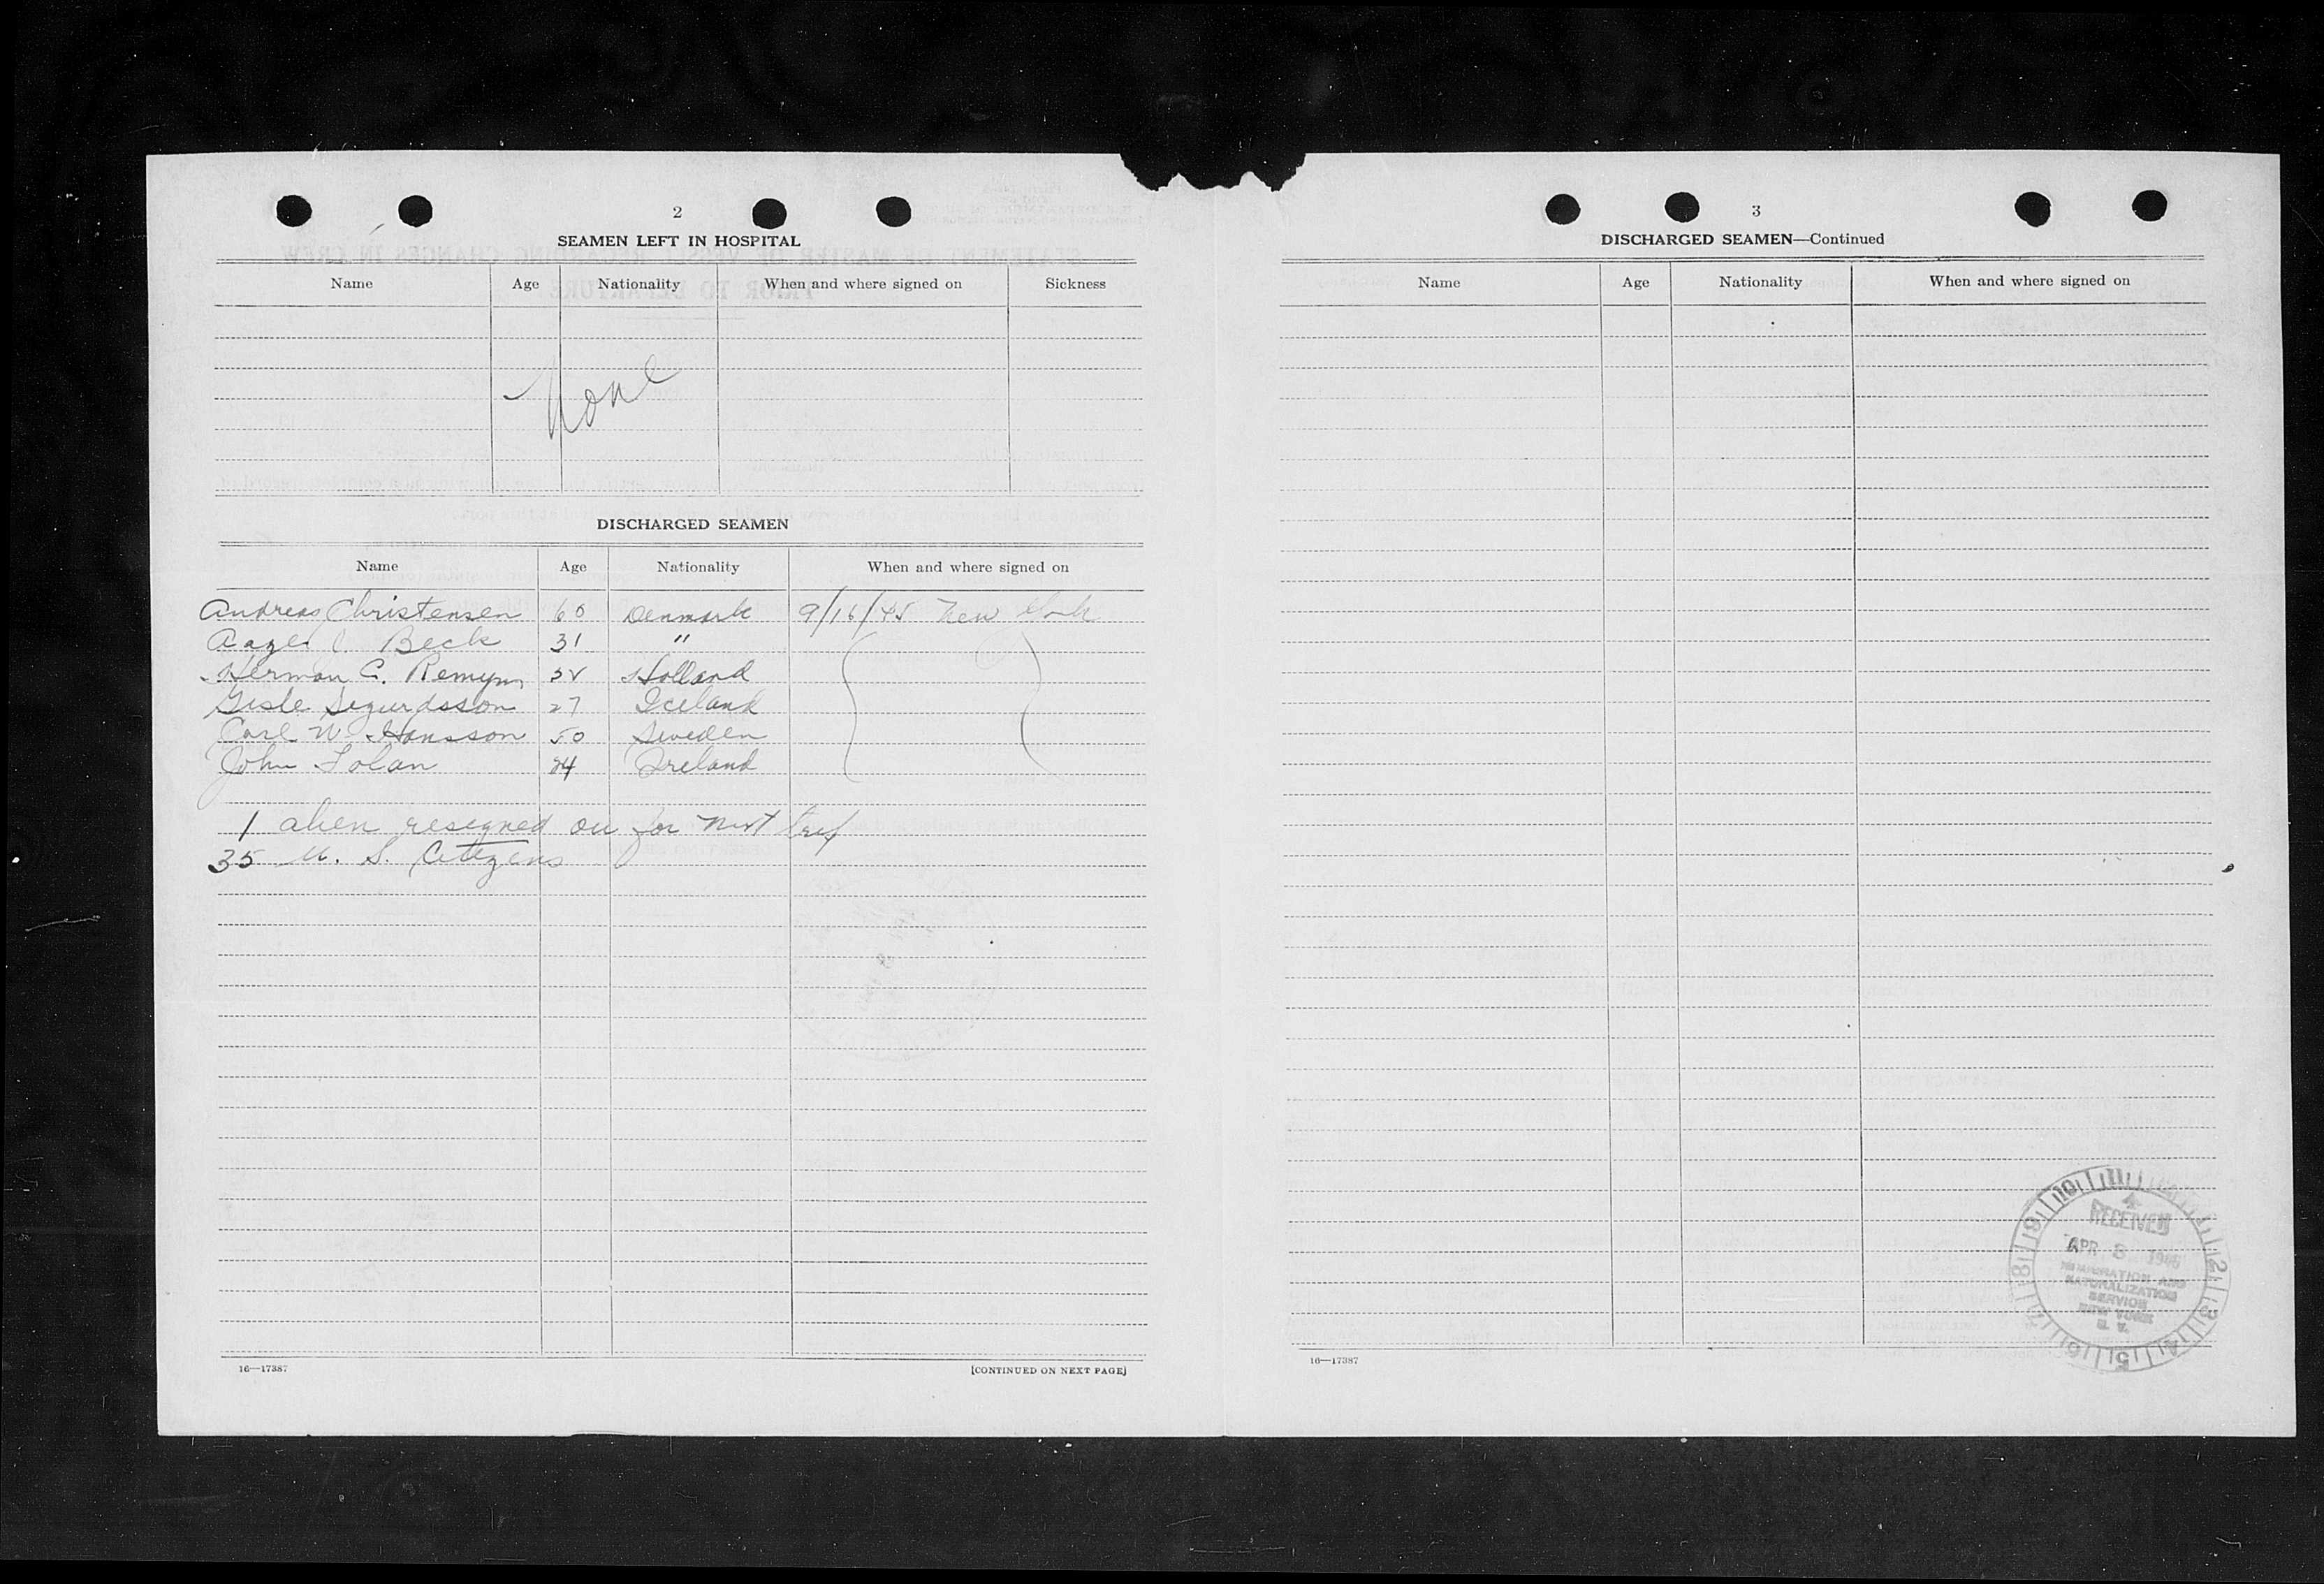 2
SEAMEN LEFT IN HOSPITAL
Name Age Nationality When and where signed on Sickness
None
DISCHARGED SEAMEN
Name Age Nationality When and where signed on
Andreas Christensen 60 Denmark 9/16/45 New York
Aage Beck 31 "
Herman C. Remyn Holland
Gisle Sigurdsson 27 Iceland
Carl W. Hansson 50 Sweden
John 24 Ireland
1 alien resigned on for next trip
35 U. S. Citizens
16—17387 [CONTINUED ON NEXT PAGE]
3
DISCHARGED SEAMEN—Continued
Name Age Nationality When and where signed on
RECEIVED
APR 8 1946
IMMIGRATION AND
NATURALIZATION
SERVICE
NEW YORK
N. Y.
16—17387